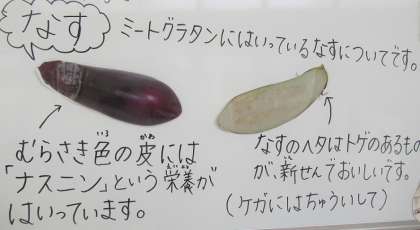 なす
ミートグラタンにはいっているなすについてです。
むらさき色の皮には
「ナスニン」という栄養が
はいっています。
なすのヘタはトゲのあるもの
が、新せんでおいしいです。
（ケガにはちゅういして）